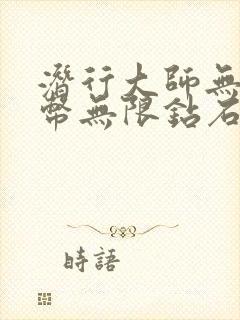 潛行大師無
幣無限鉆石
時語